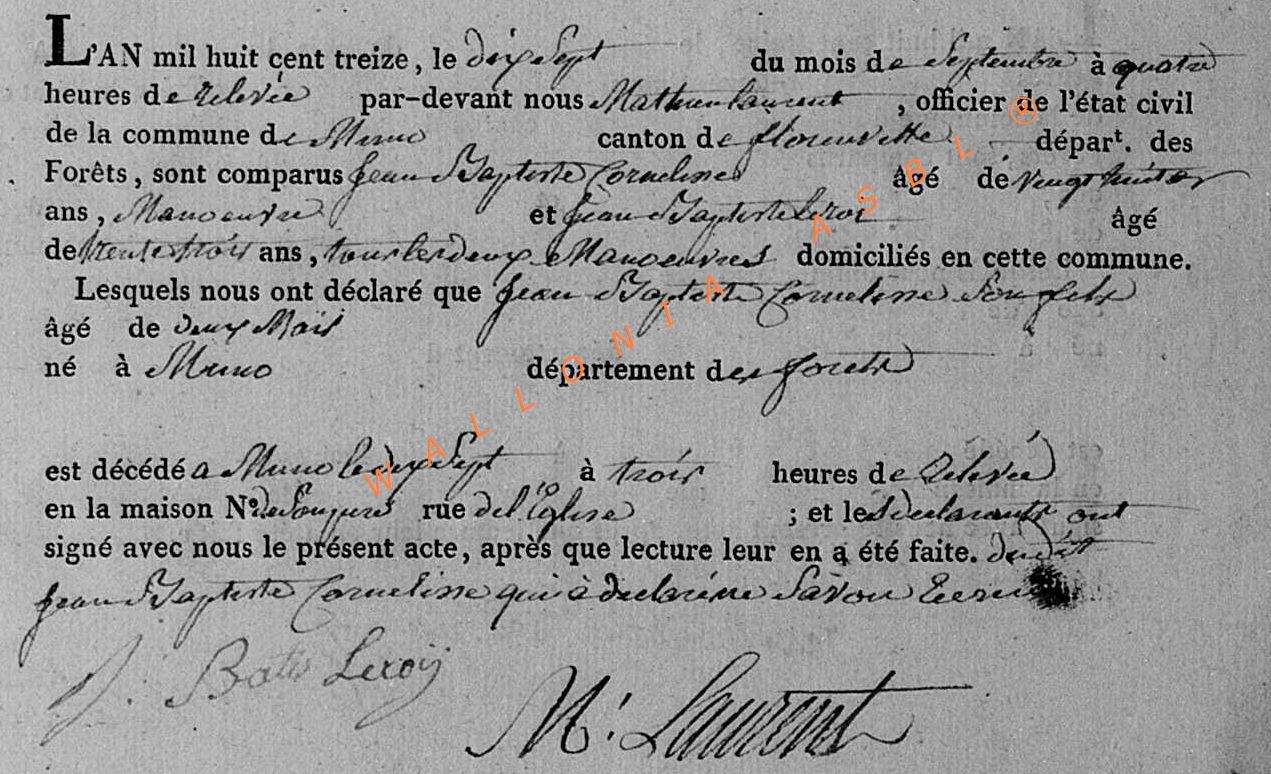 L'AN mil huit cent treize, le dix Sept du mois de Septembre à quatre
heures de relevée par-devant nous Mathieu laurent, officier de l'état civil
de la commune de Muno canton de florenville départ. des
Forêts, sont comparus jean Baptiste Cornelisse âgé de vengt huit
ans, Manoeuvre et jean Baptiste leroi âgé
de trente trois ans, tous les deux Manoeuvres domiciliés en cette commune.
Lesquels nous ont déclaré que jean Baptiste Cornelisse Son fils
âgé de deux Mois
né à Muno département des forets
est décédé a Muno le dix Sept à trois heures de Relevée
en la maison Nº. de Son pere rue de l'Eglise ; et les déclarants ont
signé avec nous le présent acte, après que lecture leur en a été faite.
jean Baptiste Cornelisse qui à declaré ne Savoir
J. Batis Leroÿ
M. Laurent
WALLONIA ASBL ®